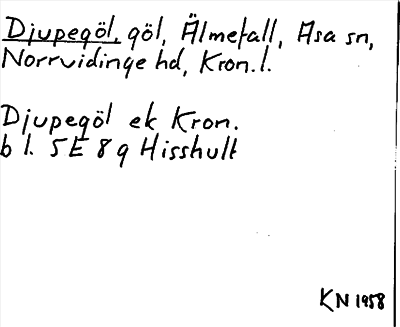 Djupegöl, göl, Älmefall, Asa sn,
Norrvidinge hd, Kron. l.
Djupegöl ek Kron.
b l. 5E 8 g Hisshult
KN 1958